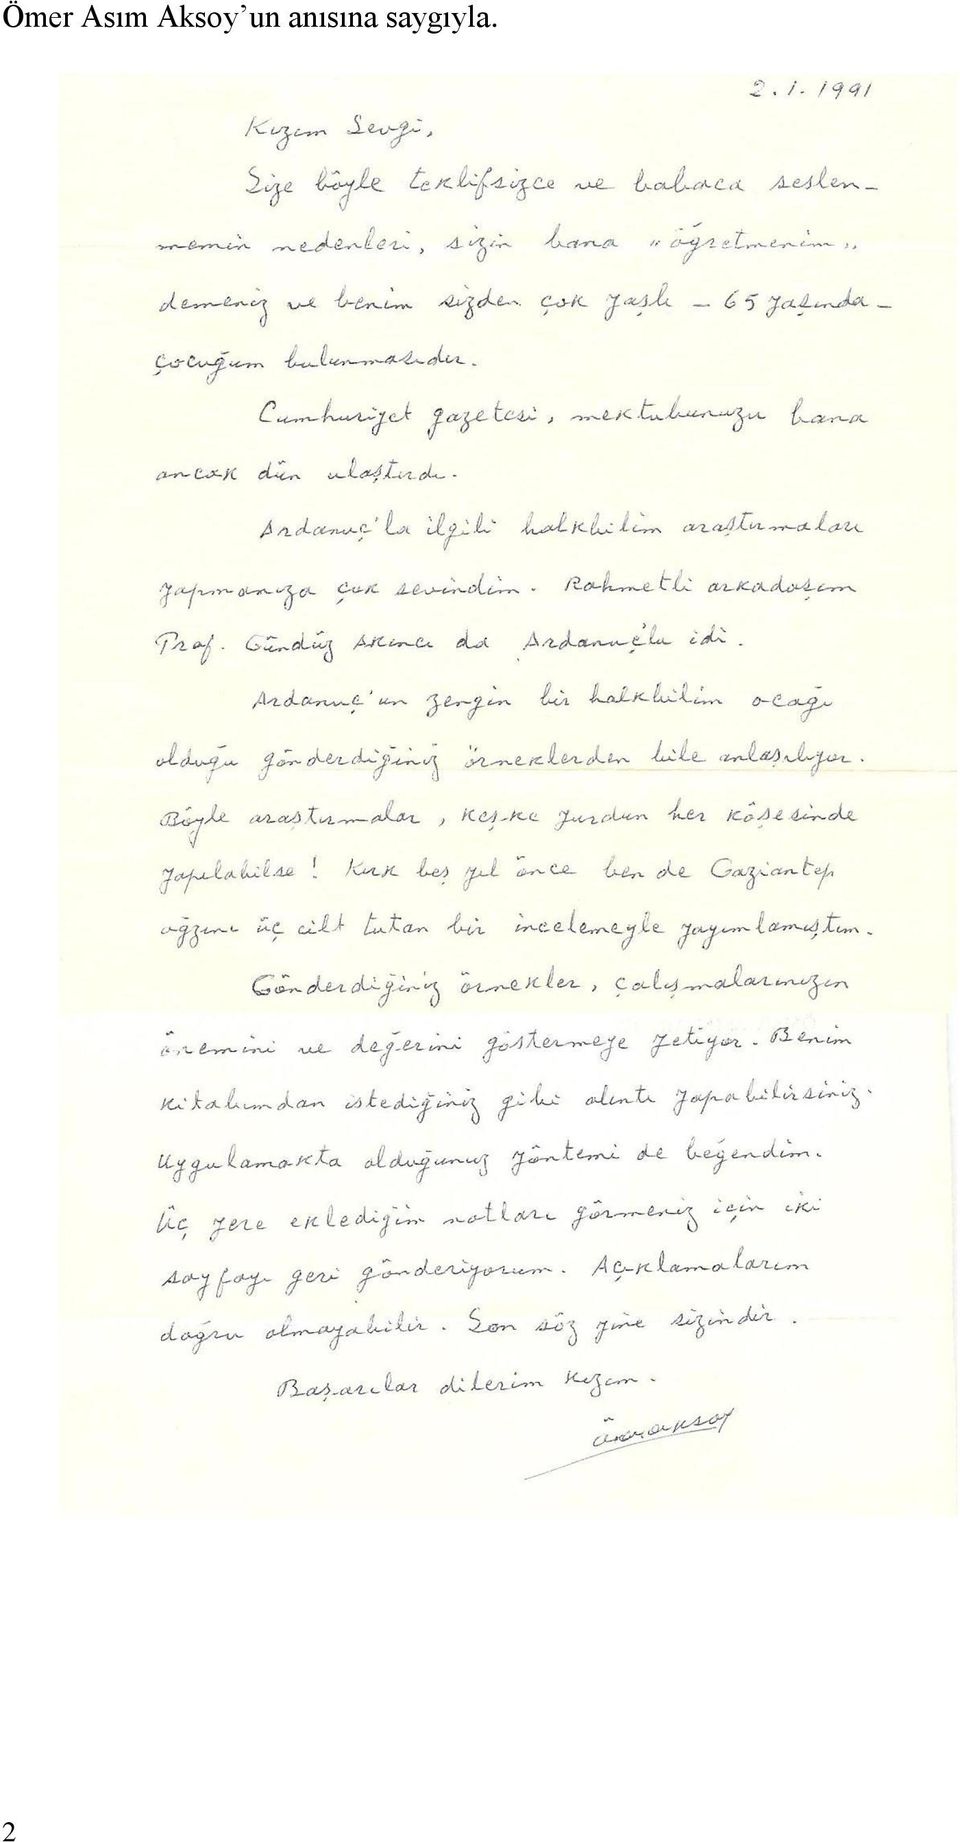 Ömer Asım Aksoy'un anısına saygıyla.
2.1.1991
Kızım Sevgi,
Size böyle teklifsizce ve babaca seslen-
memin nedenleri, sizin bana "öğretmenim"
demeniz ve benim sizden çok yaşlı – 65 yaşında –
çocuğum bulunmasıdır.
Cumhuriyet gazetesi, mektubunuzu bana
ancak dün ulaştırdı.
Ardanuç'la ilgili halkbilim araştırmaları
yapmanıza çok sevindim. Rahmetli arkadaşım
Prof. Gündüz Akıncı da Ardanuç'lu idi.
Ardanuç'un zengin bir halkbilim ocağı
olduğu gönderdiğiniz örneklerden bile anlaşılıyor.
Böyle araştırmalar, keşke yurdun her köşesinde
yapılabilse! Kırk beş yıl önce ben de Gaziantep
ağzını üç cilt tutan bir incelemeyle yayımlamıştım.
Gönderdiğiniz örnekler, çalışmalarınızın
önemini ve değerini göstermeye yetiyor. Benim
kitabımdan istediğiniz gibi alıntı yapabilirsiniz.
Uygulamakta olduğunuz yöntemi de beğendim.
Üç yere eklediğim notları görmeniz için iki
sayfayı geri gönderiyorum. Açıklamalarım
doğru olmayabilir. Son söz yine sizindir.
Başarılar dilerim kızım.
ömeraksoy
2